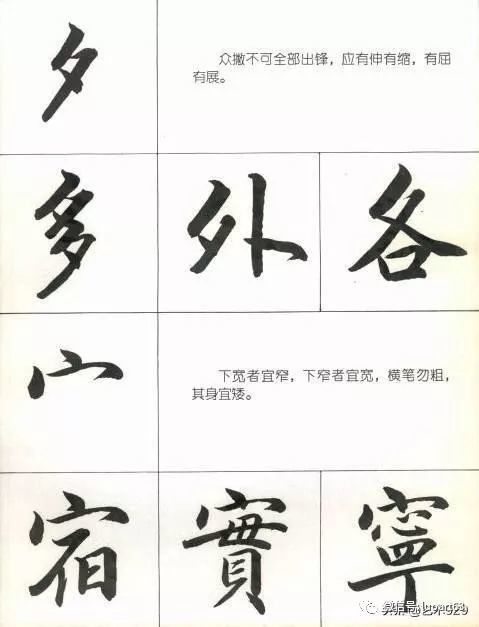 夕
众撇不可全部出锋，应有伸有缩，有屈
有展。
多 外 各
宀
下宽者宜窄，下窄者宜宽，横笔勿粗，
其身宜矮。
宿 實 寧